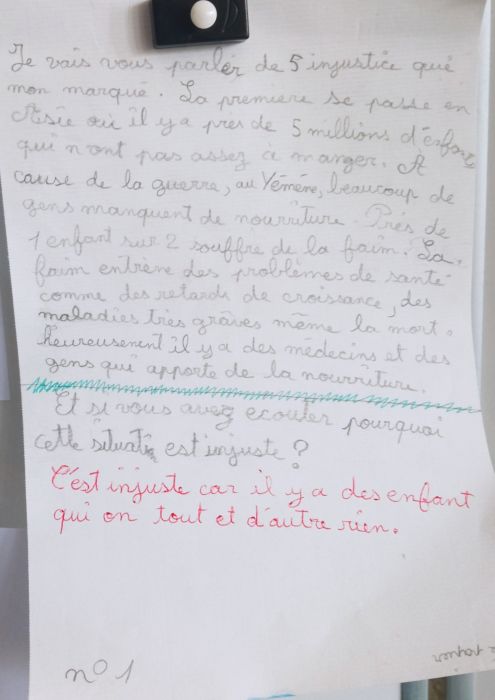 Je vais vous parler de 5 injustice qui
mon marqué. La première se passe en
Asie où il y a près de 5 millions d'enfants
qui n'ont pas assez à manger. A
cause de la guerre, au Yémène, beaucoup de
gens manquent de nourriture. Près de
1 enfant sur 2 souffre de la faim. La
faim entrène des problèmes de santé
comme des retards de croissance, des
maladies très grâves même la mort.
heureusement il y a des médecins et des
gens qui apporte de la nourriture.
Et si vous avez ecouter pourquoi
cette situatin est injuste ?
C'est injuste car il y a des enfant
qui on tout et d'autre rien.
n° 1